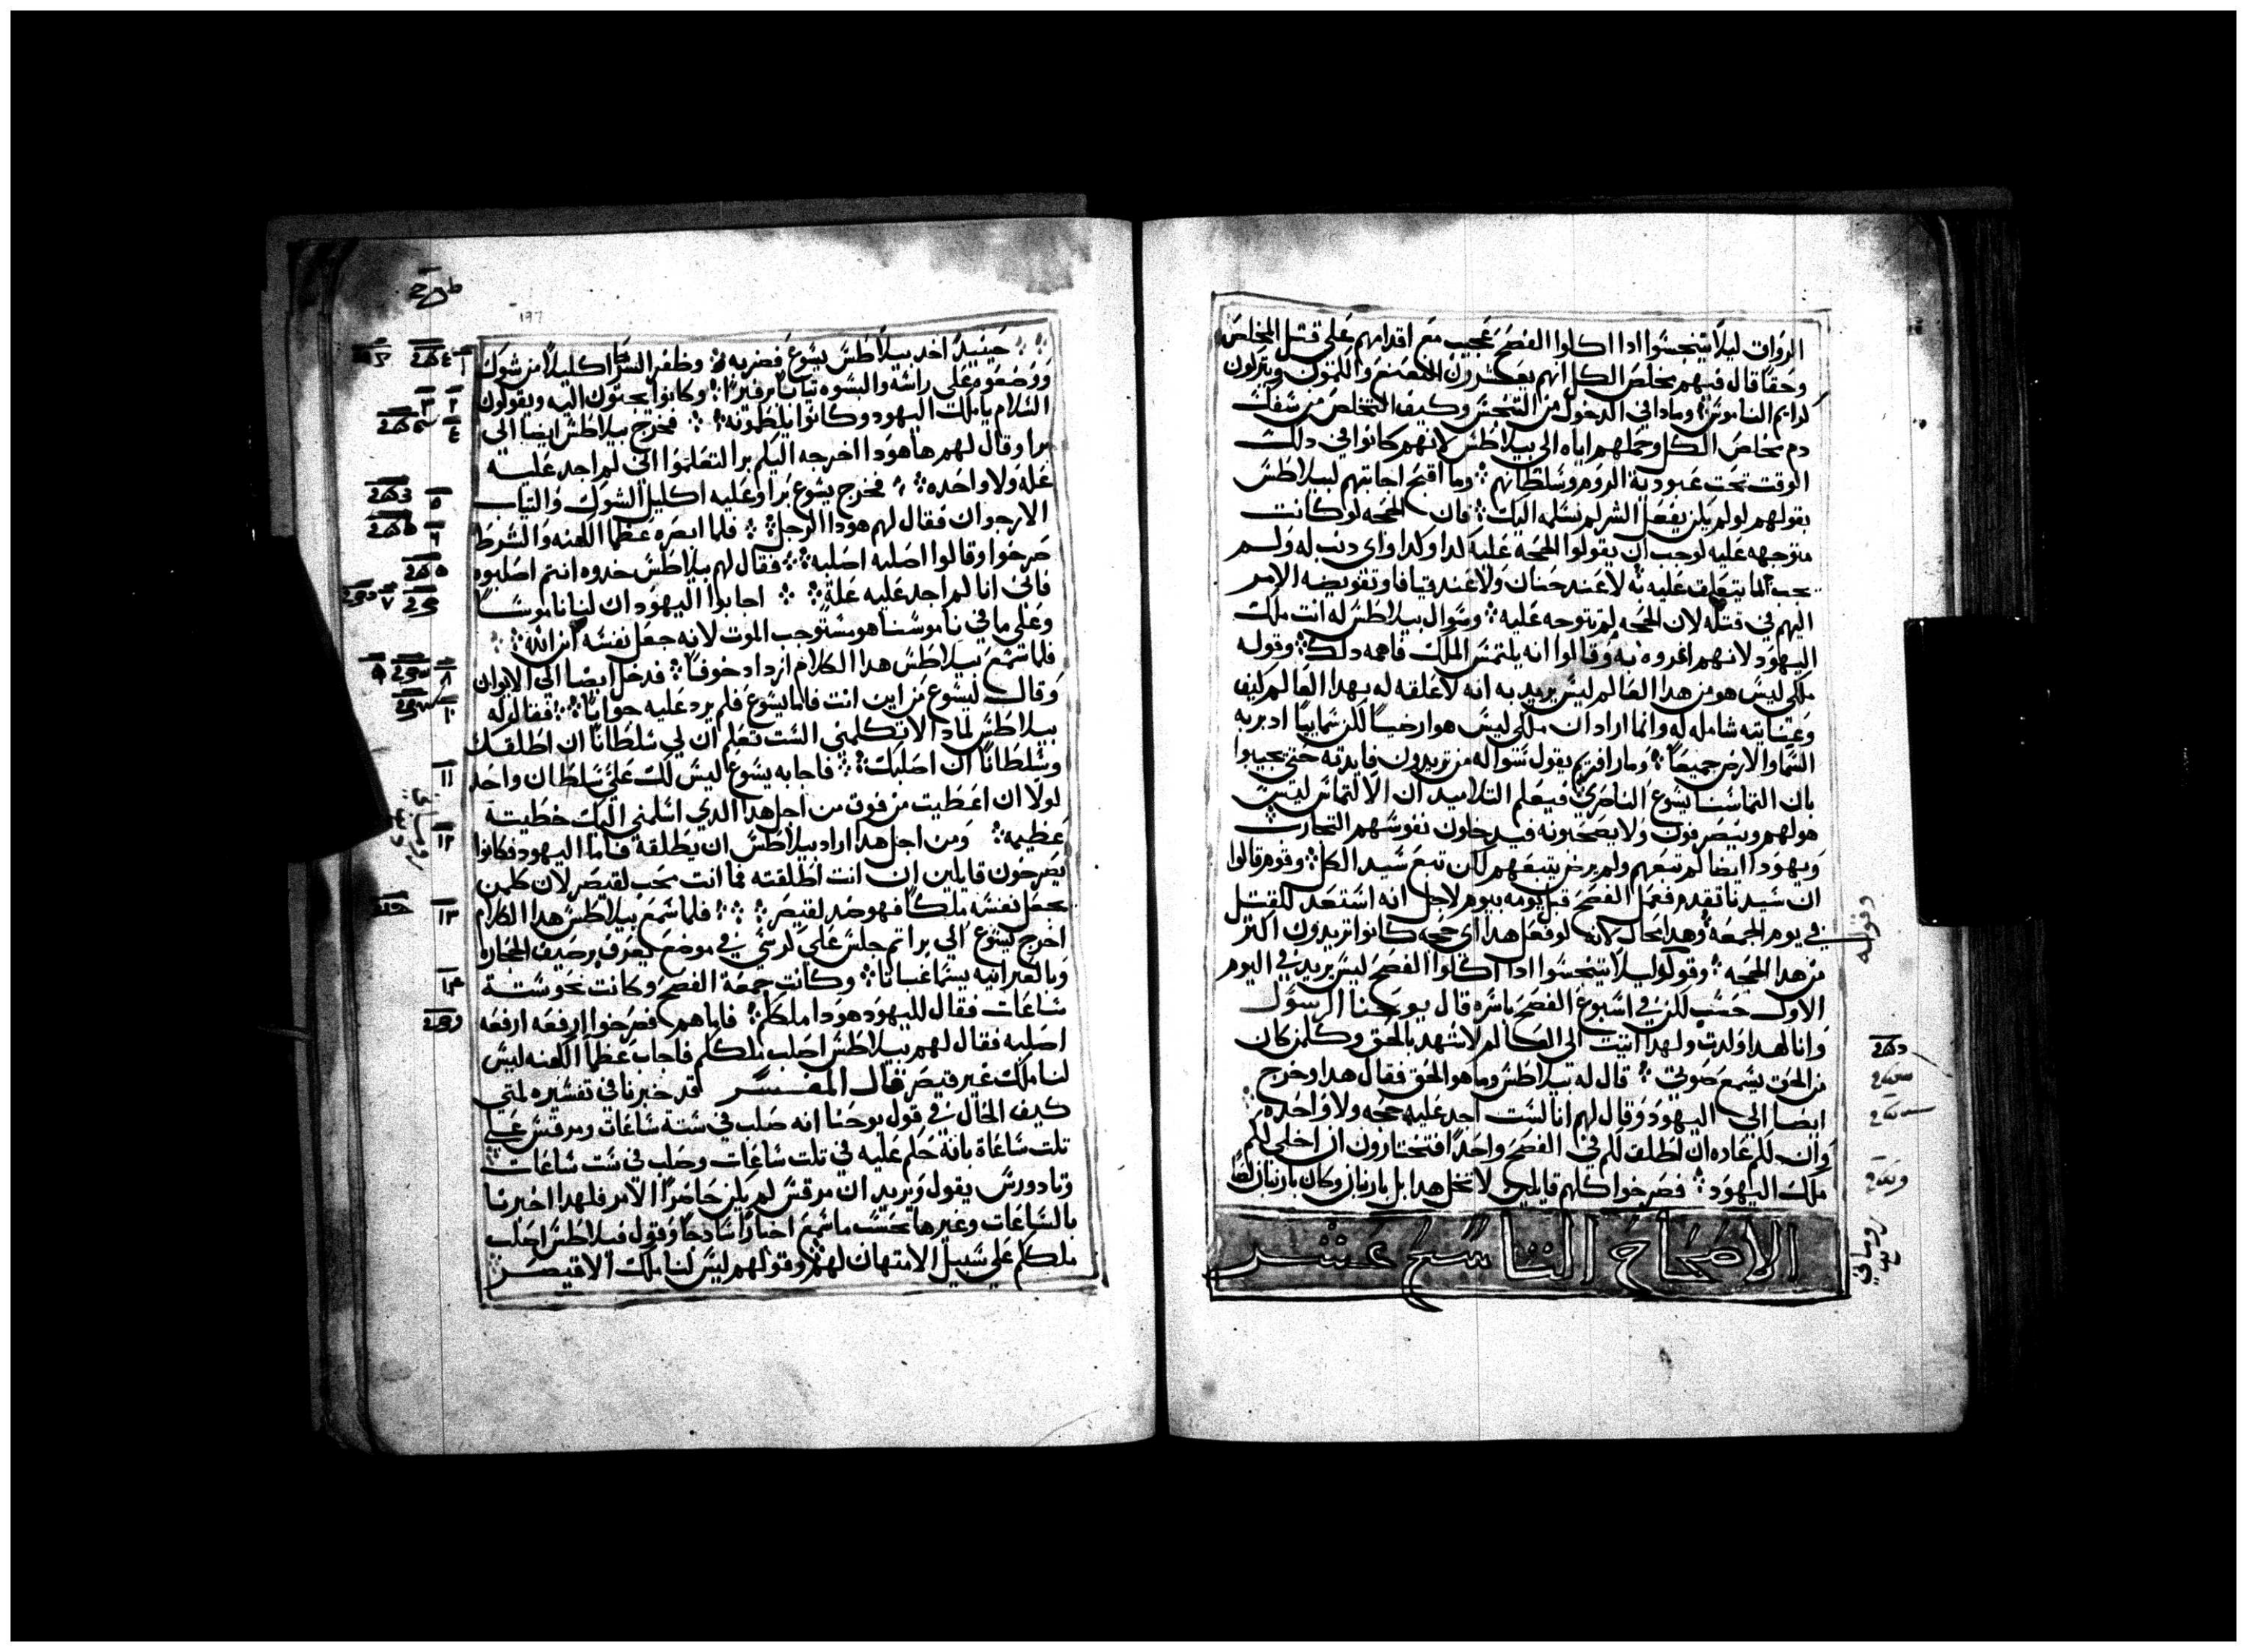 الرواق ليلا يتنجسوا ادا اكلوا الفصح عجيب مع اقدامهم على قتل المخلص
وحقا قال فيهم مخلص الكل انهم يعشرون النعنع والكمون ويتركون
كرايم الناموس وماذا في الدخول من التنجس وكيف التخلص من سفك
دم مخلص الكل وحملهم اياه الى بيلاطس لانهم كانوا في دلك
الوقت تحت عبودية الروم وسلطانهم وما اقبح اجابتهم لبيلاطس
بقولهم لو لم يكن يفعل الشر لم نسلمه اليك فان الحجه لو كانت
متوجهه عليه لوجب ان يقولوا الحجة عليه كدا وكدا واي دنب له ولم
يجب لما يتعلق عليه به لا عند حنان ولا عند قيافا وتفويضه الامر
اليهم في قتله لان الحجه لم تتوجه عليه وسوال بيلاطس له انت ملك
اليهود لانهم اغروه به وقالوا انه يلتمس الملك فاهمه دلك وقوله
ملكي ليس هو من هدا العالم ليس يريد به انه لا علقه له بهدا العالم كيف
وعنايته شامله له وانما اراد ان ملكي ليس هو ارضيا لكن سماييا ادبر به
السما والارض جميعا ومار افريم يقول سواله من تريدون فايدته حتى يجيبوا
بان التماسنا يسوع الناصري فيعلم التلاميد ان الالتماس ليس
هو لهم وينصرفون ولا يصحبونه فيدخلون نفوسهم التجارب
ويهودا ايضا لم تبعهم ولم يرض يتبعهم لكن تبع سيد الكل وقوم قالوا
ان سيدنا تقدم فعمل الفصح قبل يومه بيوم لاجل انه استعد للقتل
في يوم الجمعه وهدا محال لانه لو فعل هدا اي حجه كانوا يريدون اكتر
من هدا الحجه وقوله ليلا يتنجسوا ادا اكلوا الفصح ليس يريد في اليوم
الاول حسب لكن في اسبوع الفصح باسره قال يوحنا الرسول
وانا لهدا ولدت ولهدا اتيت الى العالم لاشهد بالحق وكلمن كان
من الحق يسمع صوتي قال له بيلاطس وما هو الحق فقال هدا وخرج
ايضا الى اليهود وقال لهم انا لست اجد عليه حجه ولا واحده
وان لكم عاده ان اطلق لكم في الفصح واحدا افتختارون ان اخلي لكم
ملك اليهود فصرخوا كلهم قايلين لا تخل هدا بل بارنبان وكان بارنبان لصا
الاصحاح التاسع عشر
وقوله
197
حينيد اخد بيلاطس يسوع فضربه وظفر الشرط اكليلا من شوك
ووضعوه على راسه والبسوه تيابا برفيرا وكانوا يجتون اليه ويقولون
السلام يا ملك اليهود وكانوا يلطمونه فخرج بيلاطس ايضا الى
برا وقال لهم ها هودا اخرجه اليكم برا لتعلموا اني لم اجد عليه
عله ولا واحده فخرج يسوع برا وعليه اكليل الشوك والتياب
الارجوان فقال لهم هودا الرجل فلما ابصره عظما الكهنه والشرط
صرخوا وقالوا اصلبه اصلبه فقال لهم بيلاطس خدوه انتم اصلبوه
فاني انا لم اجد عليه علة اجابوا اليهود ان لنا ناموسا
وعلى ما في ناموسنا هو مستوجب الموت لانه جعل نفسه ابن الله
فلما سمع بيلاطس هدا الكلام ازداد خوفا فدخل ايضا الى الايوان
وقال ليسوع من اين انت فاما يسوع فلم يرد عليه جوابا فقال له
بيلاطس لمادا لا تكلمني الست تعلم ان لي سلطانا ان اطلقك
وسلطانا ان اصلبك فاجابه يسوع ليس لك علي سلطان واحد
لولا ان اعطيت من فوق من اجل هدا الدي اسلمني اليك خطيته
عظيمه ومن اجل هدا اراد بيلاطس ان يطلقه فاما اليهود فكانوا
يصرخون قايلين ان انت اطلقته فما انت محب لقيصر لان كلمن
يجعل نفسه ملكا فهو ضد لقيصر فلما سمع بيلاطس هدا الكلام
اخرج يسوع الى برا تم جلس على كرسي في موضع يعرف برصيف الحجاره
وبالعبرانيه يسما غباتا وكانت جمعة الفصح وكانت نحو ستة
ساعات فقال لليهود هودا ملككم فاما هم فصرخوا ارفعه ارفعه
اصلبه فقال لهم بيلاطس اصلب ملككم فاجاب عظما الكهنه ليس
لنا ملك غير قيصر قال المفسر لقد خبرنا في تفسيره لمتي
كيف الحال في قول يوحنا انه صلب في ستة ساعات ومرقس على
تلت ساعاة بانه حكم عليه في تلت ساعات وصلب في ست ساعات
وتادورس يقول ويريد ان مرقس لم يكن حاضرا الامر فلهدا اخبرنا
بالساعات وغيرها بحسب ما سمع اخبارا سادجا وقول فيلاطس اصلب
ملككم على سبيل الامتهان لهم وقولهم ليس لنا ملك الا قيصر